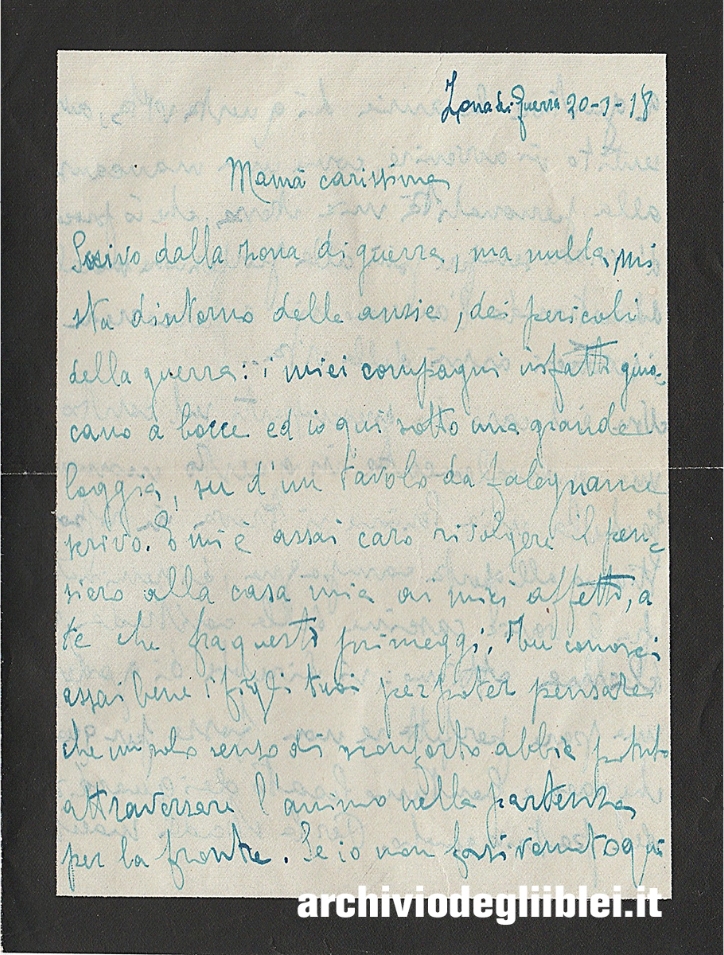 Zona di guerra 20-1-18
Mamà carissima
Scrivo dalla zona di guerra, ma nulla, mi
sta dintorno delle ansie, dei pericoli
della guerra: i miei compagni infatti giuo-
cano a bocce ed io qui sotto una grande
loggia, su d'un tavolo da falegname
scrivo. E mi è assai caro rivolgere il pen-
siero alla casa mia ai miei affetti, a
te che fra questi primeggi. Tu conosci
assai bene i figli tuoi per poter pensare
che un solo senso di sconforto abbia potuto
attraversare l'animo nella partenza
per la fronte. Se io non fossi venuto qui
archiviodegliiblei.it